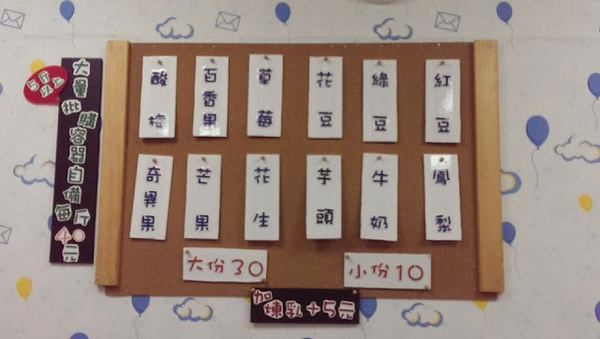 5斤以上
大量批購容器自備每斤40元
紅豆
綠豆
花豆
草莓
百香果
酸梅
鳳梨
牛奶
芋頭
花生
芒果
奇異果
大份30
小份10
加煉乳+5元